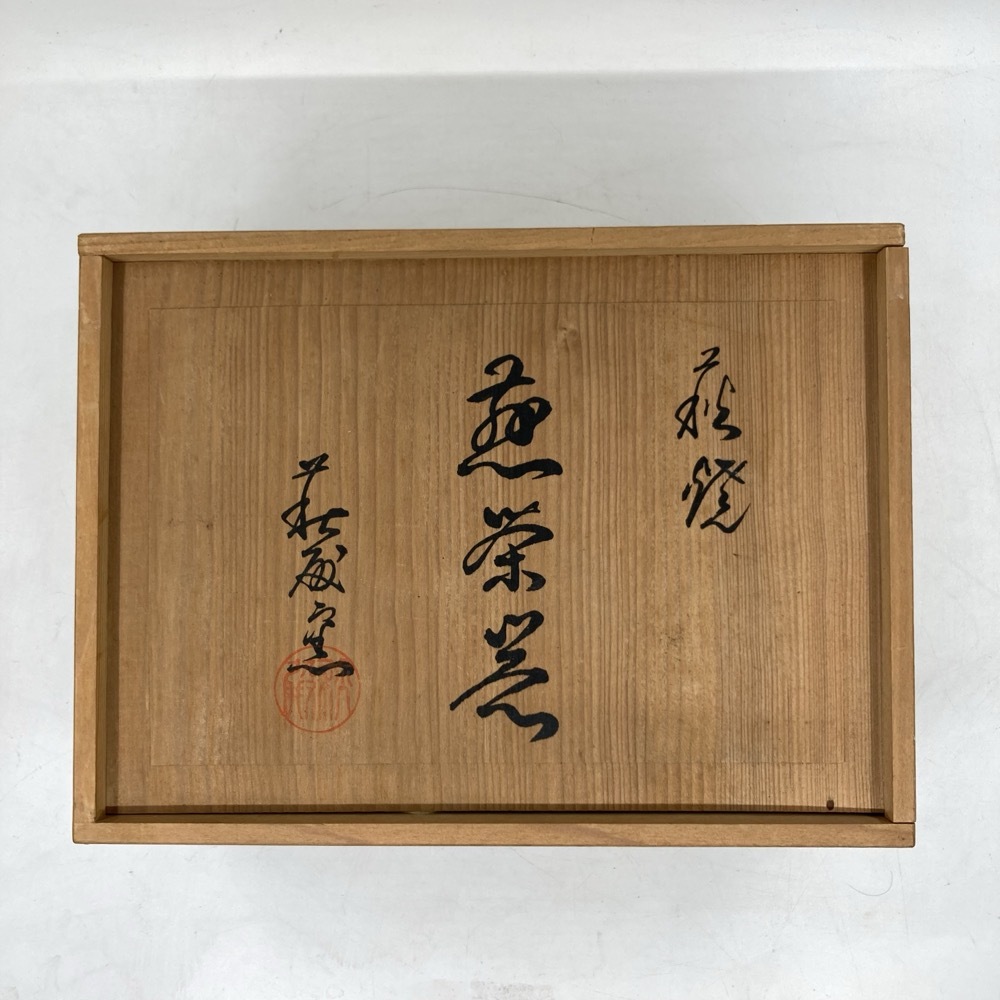 萩焼
煎茶器
萩 窯